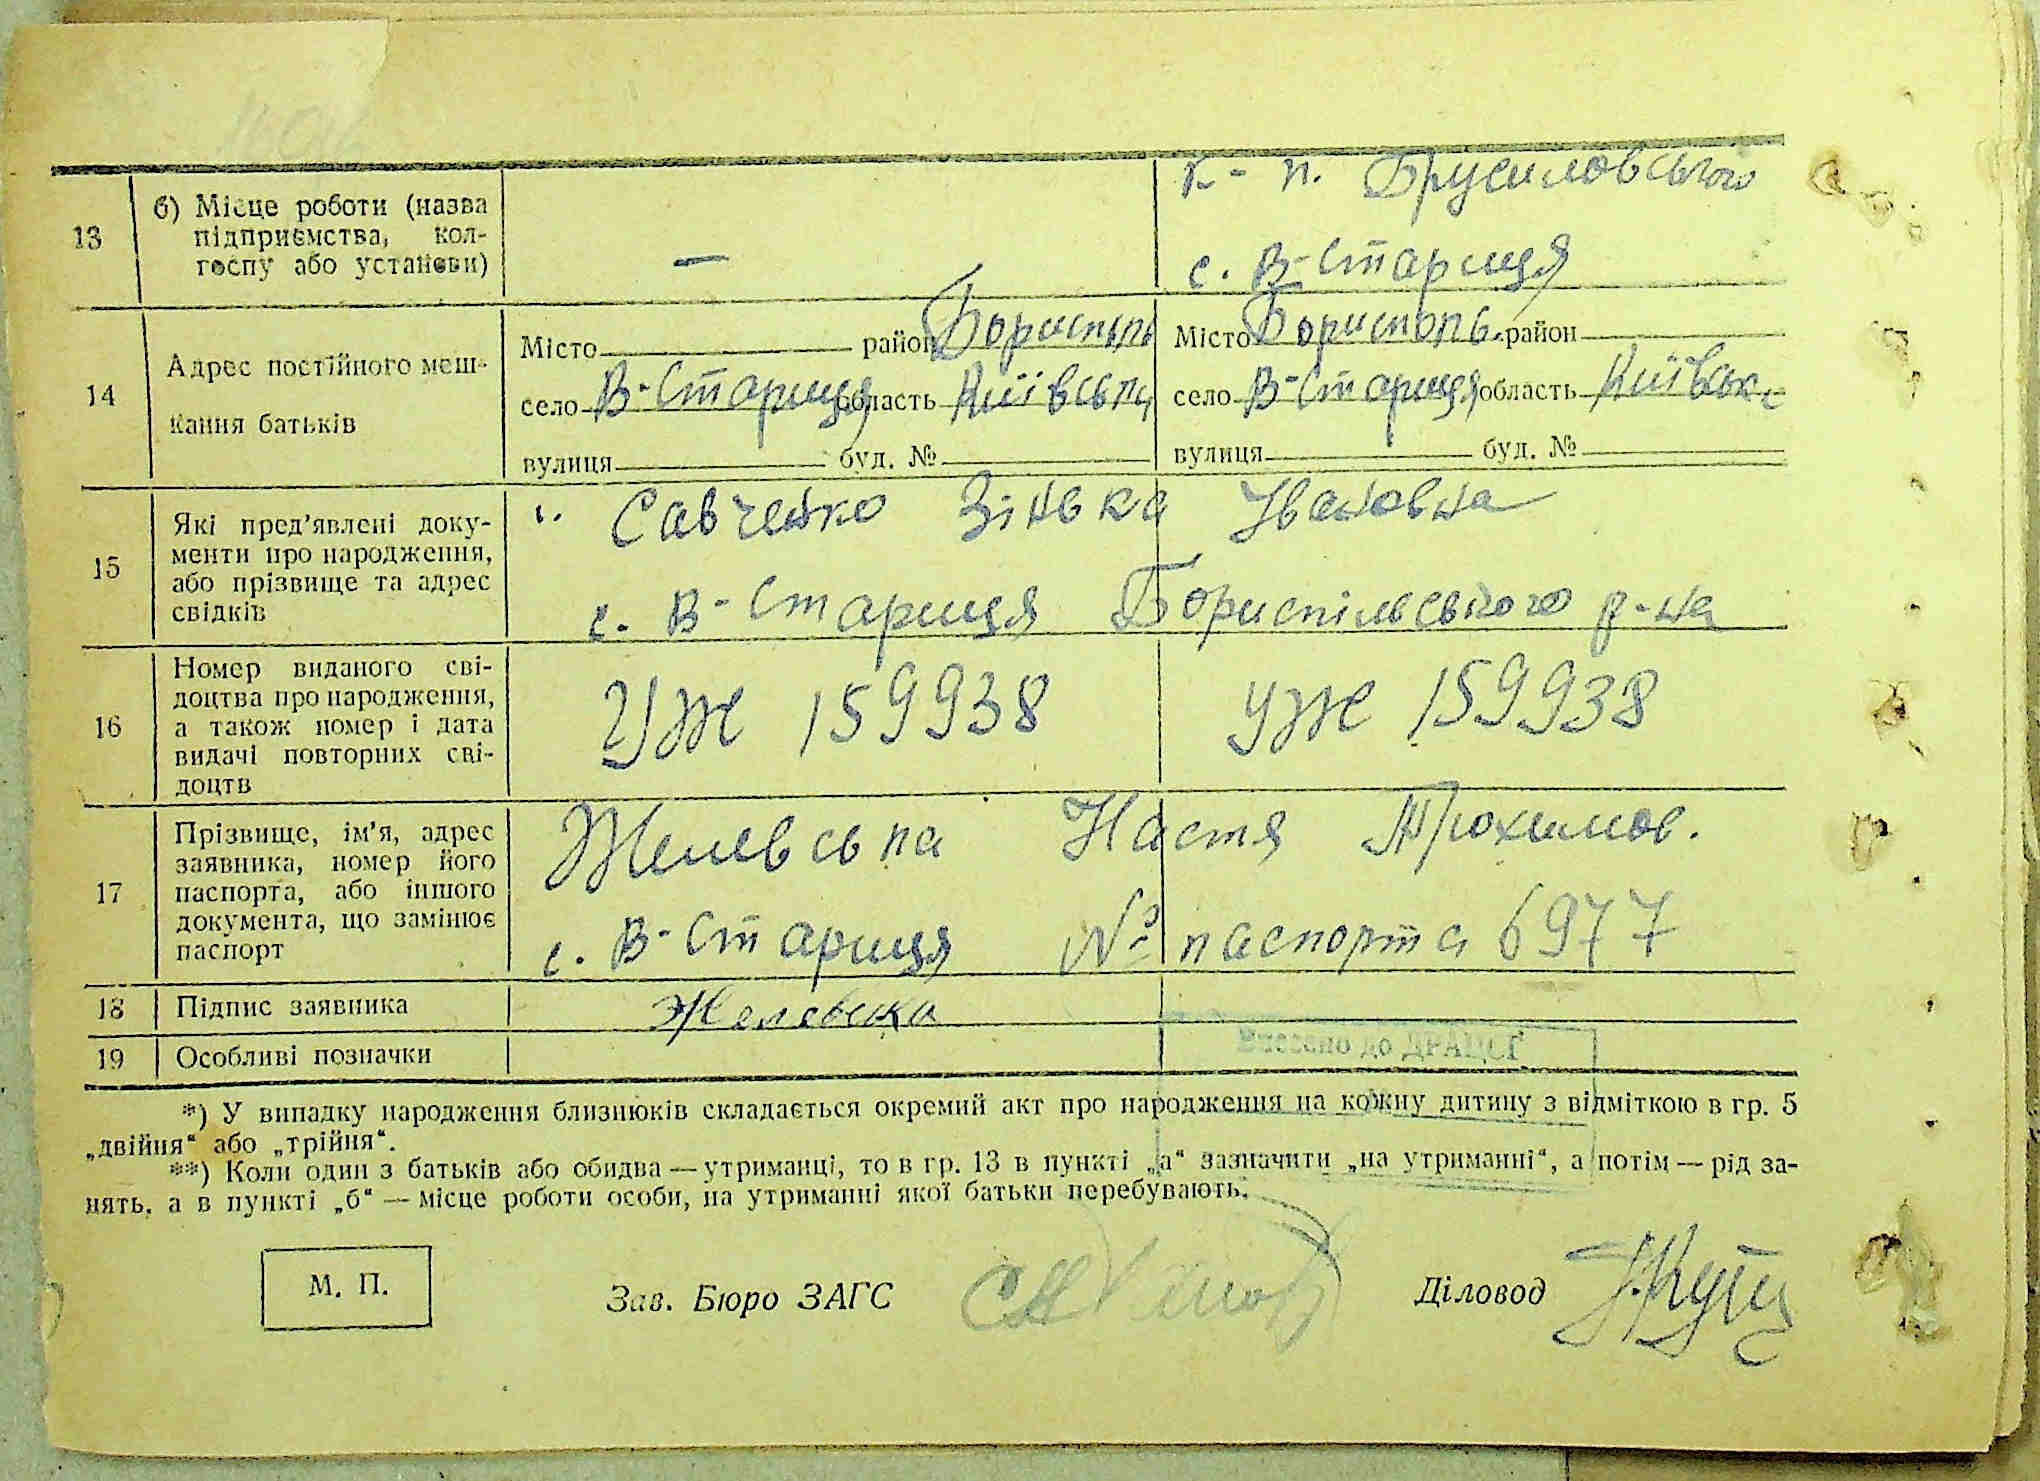 13
б) Місце роботи (назва
підприємства, кол-
госпу або установи)
—
к-п. Брусиловського
с. В-Стариця
14
Адрес постійного меш-
кання батьків
Місто район Бориспіль
село В-Стариця область Київська
вулиця буд. №
Місто Бориспіль район
село В-Стариця область Київськ
вулиця буд. №
15
Які пред’явлені доку-
менти про народження,
або прізвище та адрес
свідків
1. Савченко Зінька Івановна
с. В-Стариця Бориспільського р-на
16
Номер виданого сві-
доцтва про народження,
а також номер і дата
видачі повторних сві-
доцтв
УЖ 159938
УЖ 159938
17
Прізвище, ім’я, адрес
заявника, номер його
паспорта, або іншого
документа, що замінює
паспорт
Желевська Настя Трохимов.
с. В-Стариця № паспорта 6977
18
Підпис заявника
Желевска
19
Особливі позначки
Внесено до ДРАЦСГ
*) У випадку народження близнюків складається окремий акт про народження на кожну дитину з відміткою в гр. 5
„двійня“ або „трійня“.
**) Коли один з батьків або обидва — утриманці, то в гр. 13 в пункті „а“ зазначити „на утриманні“, а потім — рід за-
нять, а в пункті „б“ — місце роботи особи, на утриманні якої батьки перебувають.
М. П.
Зав. Бюро ЗАГС
Діловод